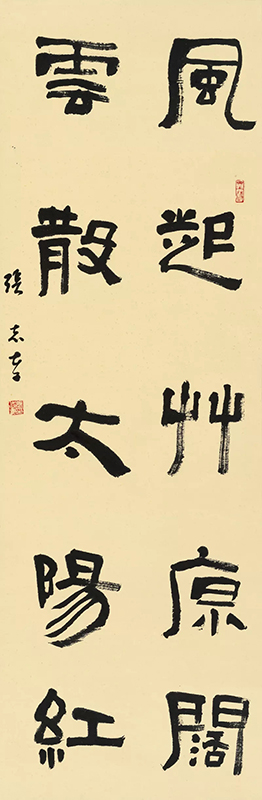 風起艸原闊
雲散太陽紅
張志